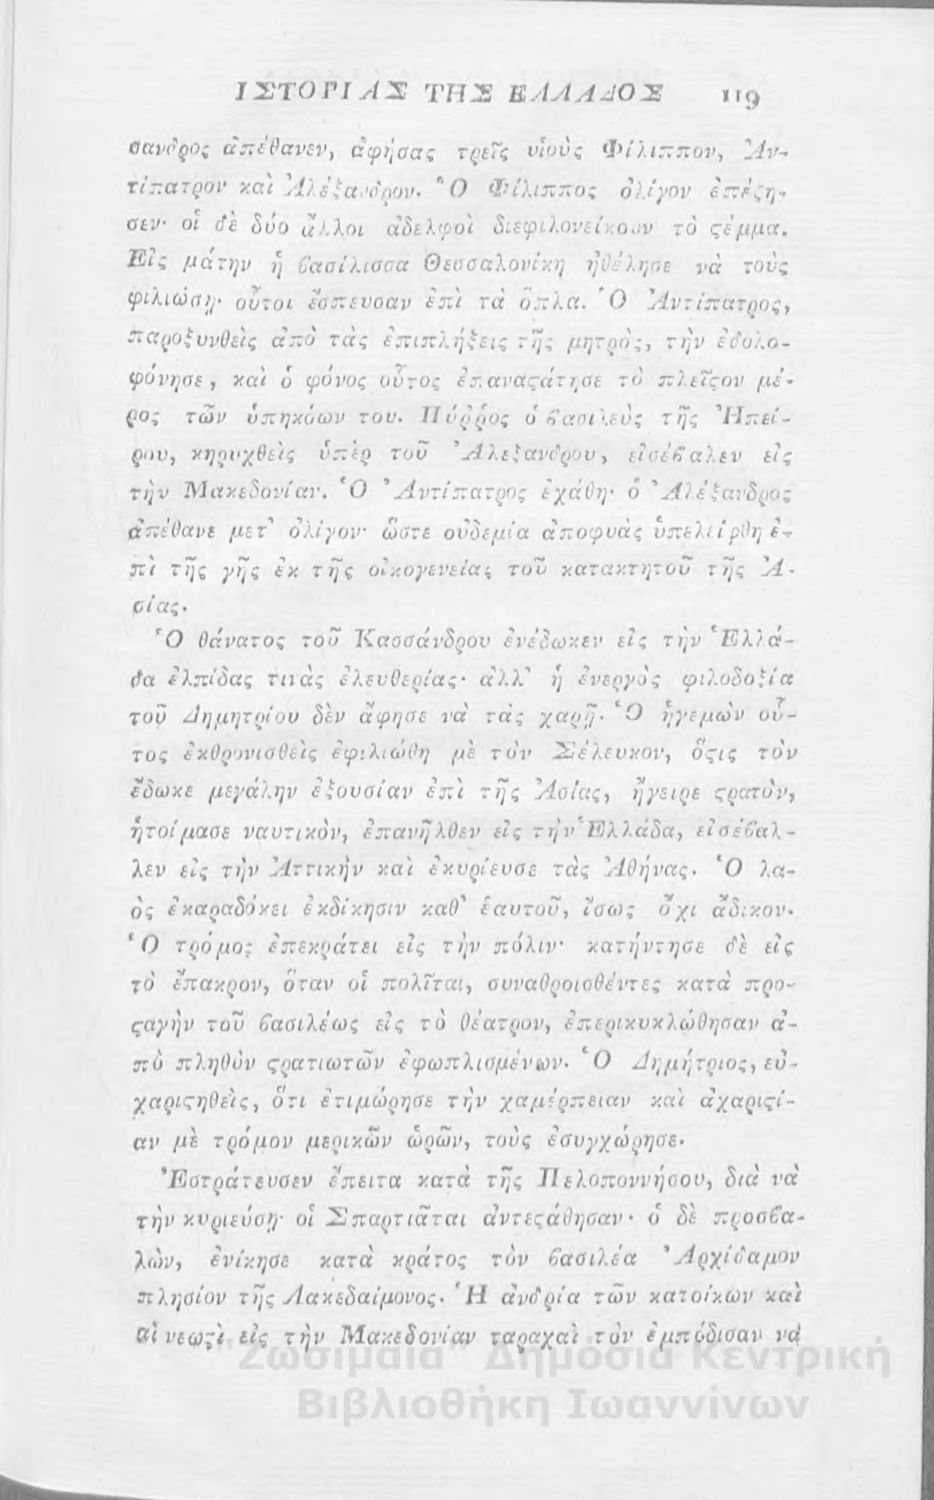 ΙΣΤΟΡΙΑΣ ΤΗΣ ΕΛΛΑΔΟΣ 119
σανδρος ἀπέθανεν, ἀφήσας τρεῖς υἱοὺς Φίλιππον, Ἀν-
τίπατρον καὶ Ἀλέξανδρον. Ὁ Φίλιππος ὀλίγον ἐπέζη-
σεν· οἱ δὲ δύο ἄλλοι ἀδελφοὶ διεφιλονείκουν τὸ ϛέμμα.
Εἰς μάτην ἡ βασίλισσα Θεσσαλονίκη ἠθέλησε νὰ τοὺς
φιλιώσῃ· οὗτοι ἔσπευσαν ἐπὶ τὰ ὅπλα. Ὁ Ἀντίπατρος,
παροξυνθεὶς ἀπὸ τὰς ἐπιπλήξεις τῆς μητρὸς, τὴν ἐδολο-
φόνησε, καὶ ὁ φόνος οὗτος ἐπαναϛάτησε τὸ πλεῖϛον μέ-
ρος τῶν ὑπηκόων του. Πύῤῥος ὁ βασιλεὺς τῆς Ἠπεί-
ρου, κηρυχθεὶς ὑπὲρ τοῦ Ἀλεξανδρου, εἰσέβαλεν εἰς
τὴν Μακεδονίαν. Ὁ Ἀντίπατρος ἐχάθη· ὁ Ἀλέξανδρος
ἀπέθανε μετ' ὀλίγον· ὥστε οὐδεμία ἀποφυὰς ὑπελείφθη ἐ-
πὶ τῆς γῆς ἐκ τῆς οἰκογενείας τοῦ κατακτητοῦ τῆς Ἀ-
σίας.
Ὁ θάνατος τοῦ Κασσάνδρου ἐνέδωκεν εἰς τὴν Ἑλλά-
δα ἐλπίδας τινὰς ἐλευθερίας· ἀλλ' ἡ ἐνεργὸς φιλοδοξία
τοῦ Δημητρίου δὲν ἄφησε νὰ τὰς χαρῇ. Ὁ ἡγεμὼν οὗ-
τος ἐκθρονισθεὶς ἐφιλιώθη μὲ τὸν Σέλευκον, ὅϛις τὸν
ἔδωκε μεγάλην ἐξουσίαν ἐπὶ τῆς Ἀσίας, ἤγειρε ϛρατὸν,
ἡτοίμασε ναυτικὸν, ἐπανῆλθεν εἰς τὴν Ἑλλάδα, εἰσέβαλ-
λεν εἰς τὴν Ἀττικὴν καὶ ἐκυρίευσε τὰς Ἀθήνας. Ὁ λα-
ὸς ἐκαραδόκει ἐκδίκησιν καθ' ἑαυτοῦ, ἴσως ὄχι ἄδικον.
Ὁ τρόμος ἐπεκράτει εἰς τὴν πόλιν· κατήντησε δὲ εἰς
τὸ ἔπακρον, ὅταν οἱ πολῖται, συναθροισθέντες κατὰ προ-
ϛαγὴν τοῦ βασιλέως εἰς τὸ θέατρον, ἐπερικυκλώθησαν ἀ-
πὸ πληθὺν ϛρατιωτῶν ἐφωπλισμένων. Ὁ Δημήτριος, εὐ-
χαριϛηθεὶς, ὅτι ἐτιμώρησε τὴν χαμέρπειαν καὶ ἀχαριϛί-
αν μὲ τρόμον μερικῶν ὡρῶν, τοὺς ἐσυγχώρησε.
Ἐστράτευσεν ἔπειτα κατὰ τῆς Πελοποννήσου, διὰ νὰ
τὴν κυριεύσῃ· οἱ Σπαρτιᾶται ἀντεϛάθησαν· ὁ δὲ προσβα-
λὼν, ἐνίκησε κατὰ κράτος τὸν βασιλέα Ἀρχίδαμον
πλησίον τῆς Λακεδαίμονος. Ἡ ἀνδρία τῶν κατοίκων καὶ
αἱ νεωϛὶ εἰς τὴν Μακεδονίαν ταραχαὶ τὸν ἐμπόδισαν νὰ
"Ζωσιμαία" Δημόσια Κεντρική
Βιβλιοθήκη Ιωαννίνων